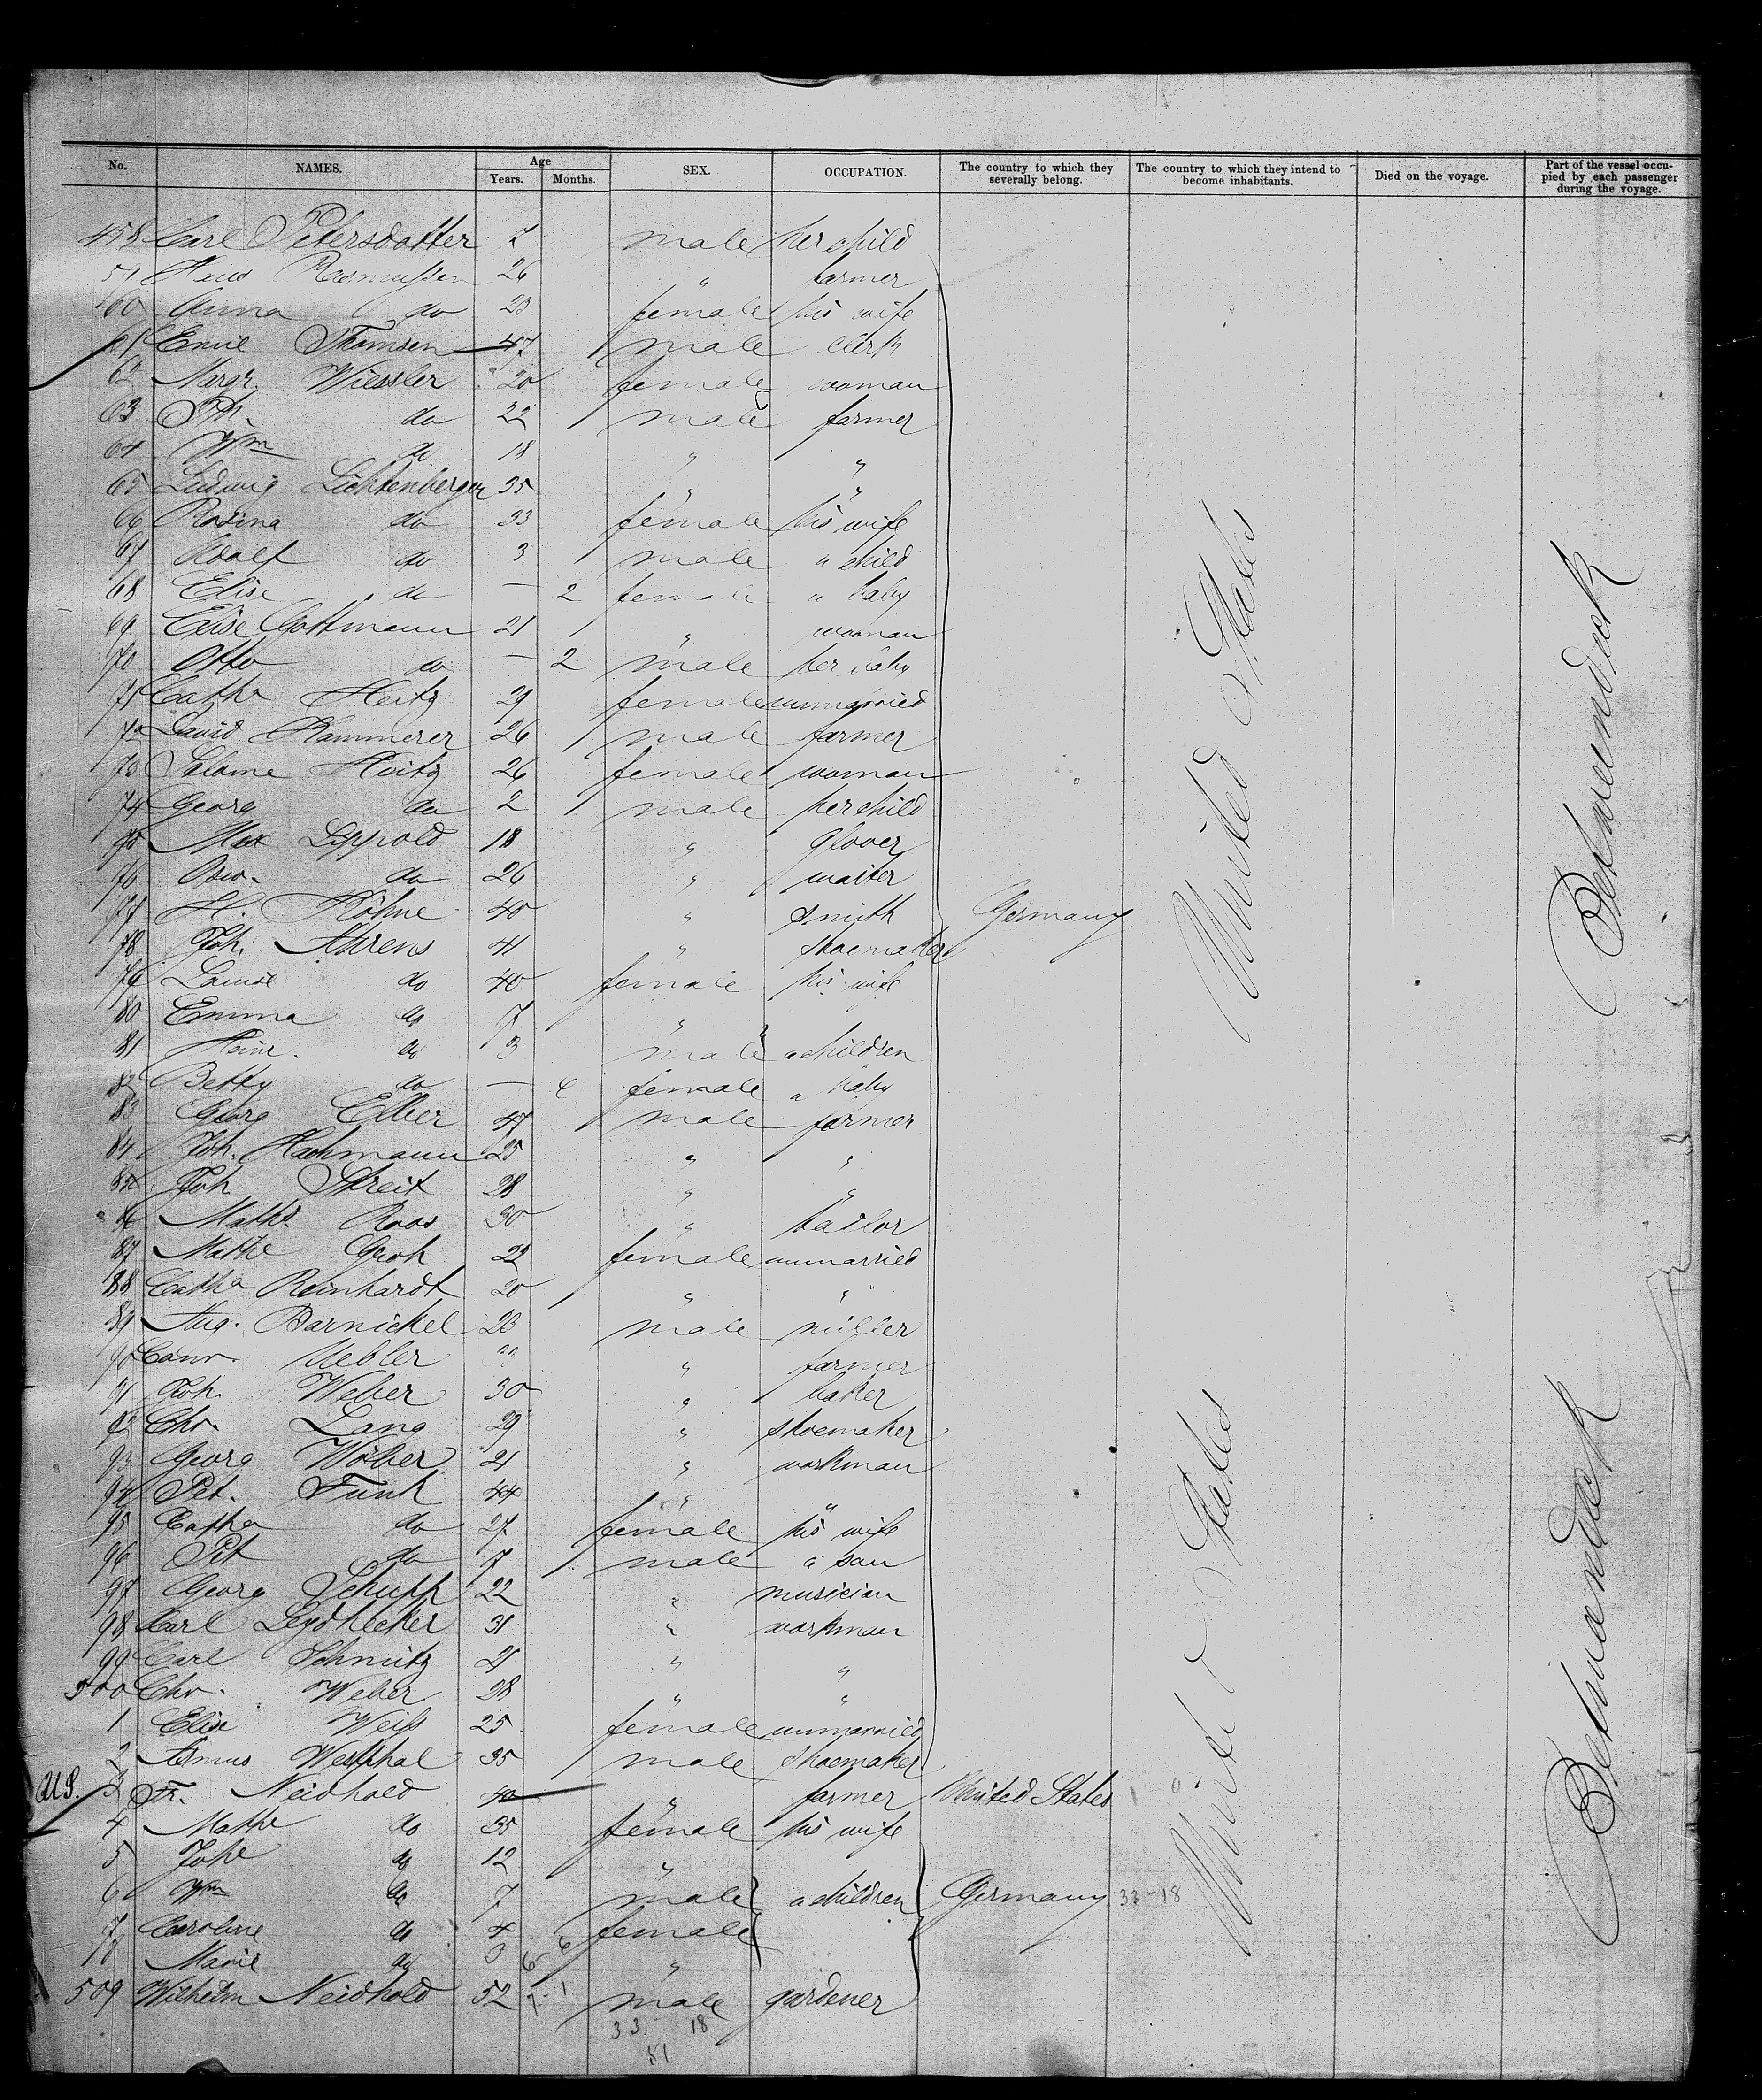 No. NAMES. Age Years. Months. SEX. OCCUPATION. The country to which they severally belong. The country to which they intend to become inhabitants. Died on the voyage. Part of the vessel occupied by each passenger during the voyage.
458 Carl Petersdatter male her child
59 Rasmussen 26 " farmer
60 Anna do 23 female his wife
61 Emil Thomsen 47 male clerk
62 Margr. Wiessler 20 female woman
63 Ph. do 22 male farmer
64 Wm do 18 " "
65 Ludwig Lichtenberger 35 " "
66 Rosina do 33 female his wife
67 Adolf do 3 male " child
68 Elise do — 2 female " baby
69 Elise Gottmann 21 " woman
70 Otto do — 2 male her baby
71 Catha Heitz 29 female unmarried
72 David Kammerer 26 male farmer
73 Salome Heitz 26 female woman
74 Georg do 2 male her child
75 Max Lippold 18 " glover
76 do 26 " waiter
77 H. Köhne 40 " smith Germany
78 Joh. Ahrens 41 " shoemaker
79 Louise do 40 female his wife
80 Emma do 7 " "
81 Heinr. do 3 male " children
82 Betty do — 6 female " baby
83 Georg Elber 47 male farmer
84 Joh. Hachmann 25 " "
85 Joh Streit 28 " "
86 Maths. Roos 30 " tailor
87 Mathe Groh 22 female unmarried
88 Catha Reinhardt 20 " "
89 Aug. Barnickel 23 male miller
90 Conr. Uebler " farmer
91 Joh. Weber 30 " baker
92 Chr. Lang 29 " shoemaker
93 Georg Wöber 21 " workman
94 Pet. Funk 44 " "
95 Catha do 27 female his wife
96 Pet do 7 male " son
97 Georg Schupp 22 " musician
98 Carl Leydhecker 31 " workman
99 Carl Schmitz 21 " "
500 Chr. Weber 28 " "
1 Elise Weiss 25 female unmarried
2 Asmus Westphal 35 male shoemaker
U.S. 3 Fr. Neidhold 40 " farmer United States
4 Mathe do 35 female his wife
5 Johe do 12 "
6 Wm do 7 male " children Germany 33-18
7 Caroline do 4 female
8 Marie do 0 6 "
509 Wilhelm Neidhold 52 male gardener
33 18
51
United States
United States
Betweendeck
Betweendeck